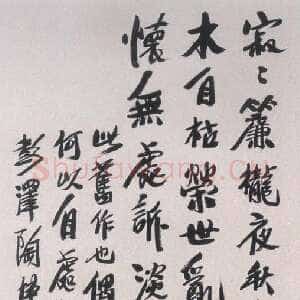 寂〻簾櫳夜秋
木自枯榮世亂
懷無處訴淡
此舊作也偶
何以自處
彭澤陶